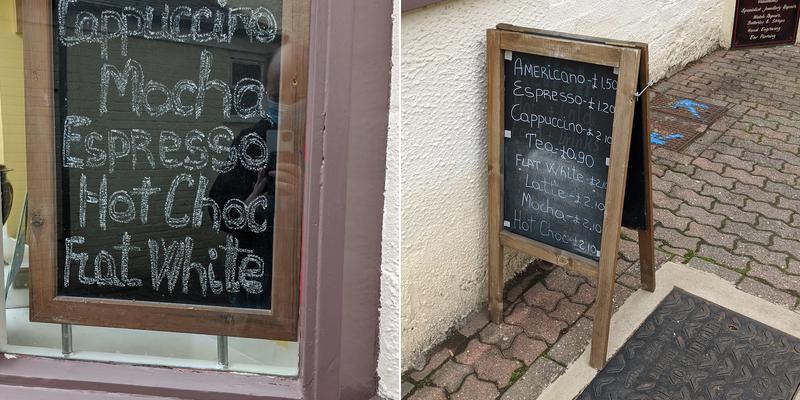 Cappuccino
Mocha
Espresso
Hot Choc
Flat White
Americano-£1.50
Espresso-£1.20
Cappuccino-£2.10
Tea-£0.90
Flat White-£2.10
Latte-£2.10
Mocha-£2.10
Hot Choc-£2.10
Specialist Jewellery Repairs
Watch Repairs,
Batteries & Straps
Hand Engraving
Ear Piercing